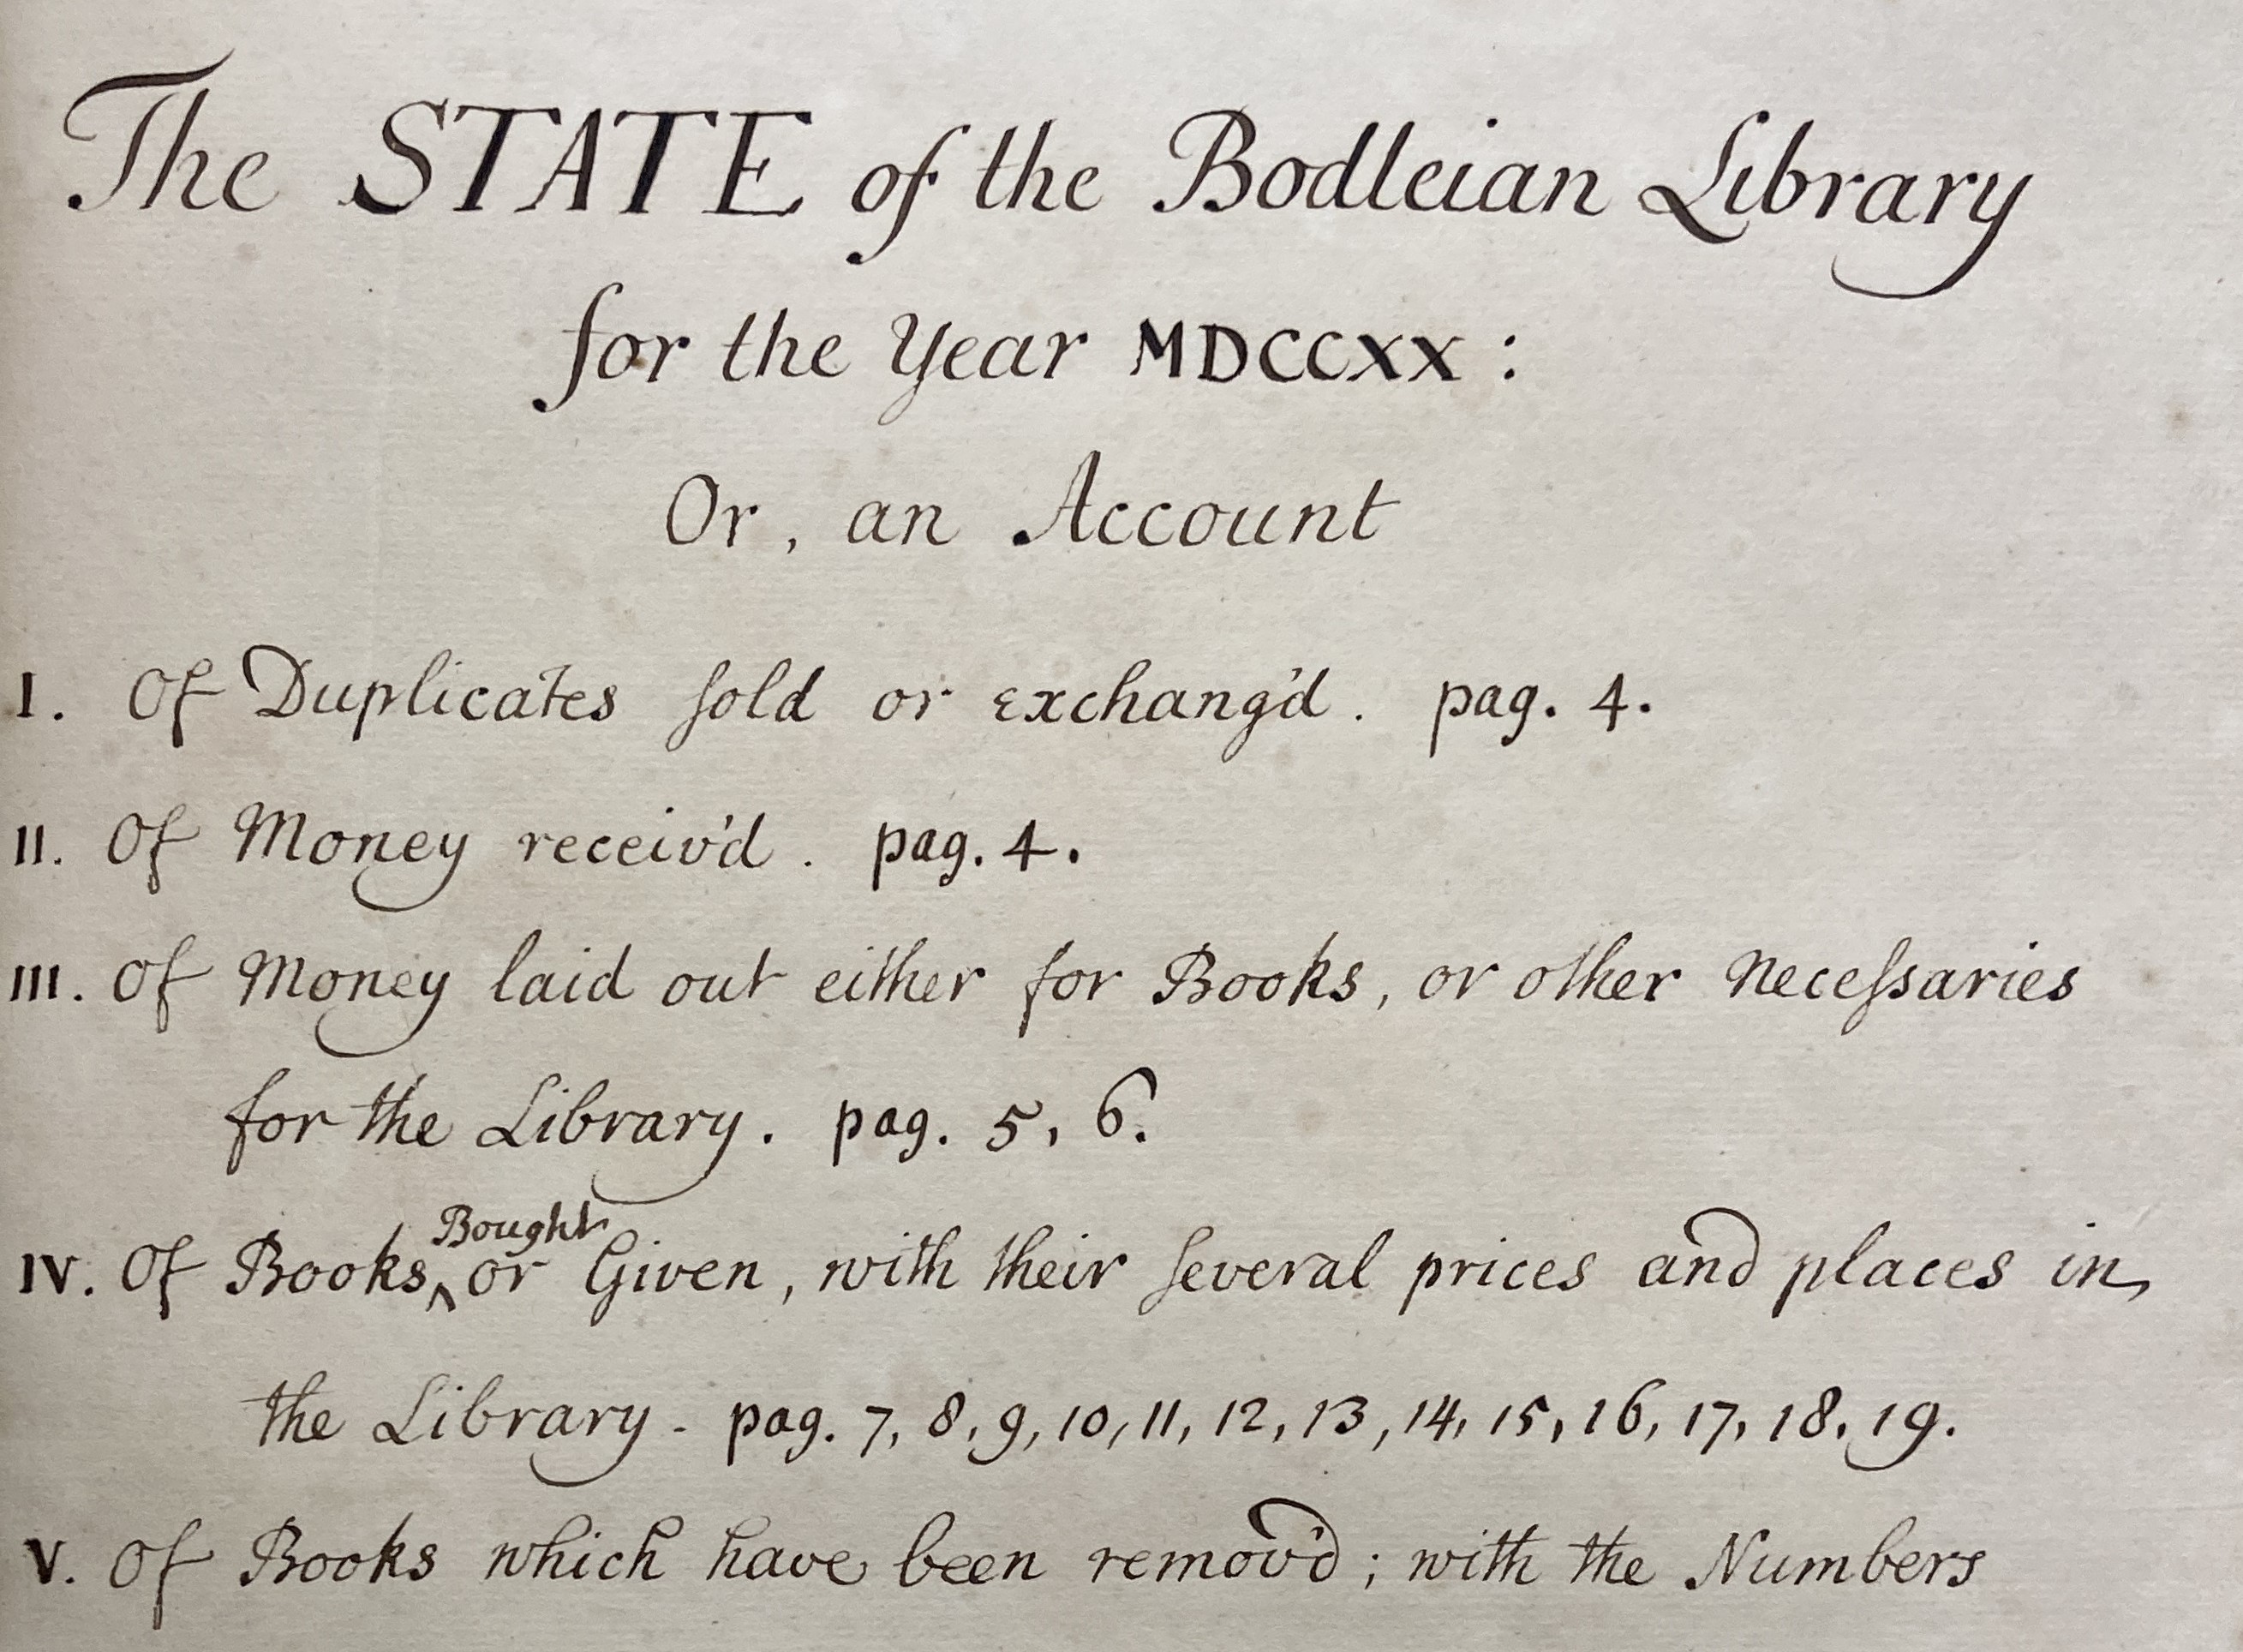 The STATE of the Bodleian Library
for the Year MDCCXX :
Or, an Account
I. Of Duplicates ſold or exchang'd. pag. 4.
II. Of Money receiv'd. pag. 4.
III. Of Money laid out either for Books, or other Neceſsaries
for the Library. pag. 5, 6.
IV. Of Books, ‸Bought or Given, with their ſeveral prices and places in
the Library - pag. 7, 8, 9, 10, 11, 12, 13, 14, 15, 16, 17, 18, 19.
V. Of Books which have been remov'd ; with the Numbers